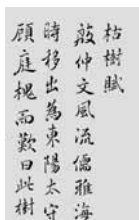 枯樹賦
殷仲文風流儒雅海
時移出為東陽太守
顧庭槐而歎曰此樹